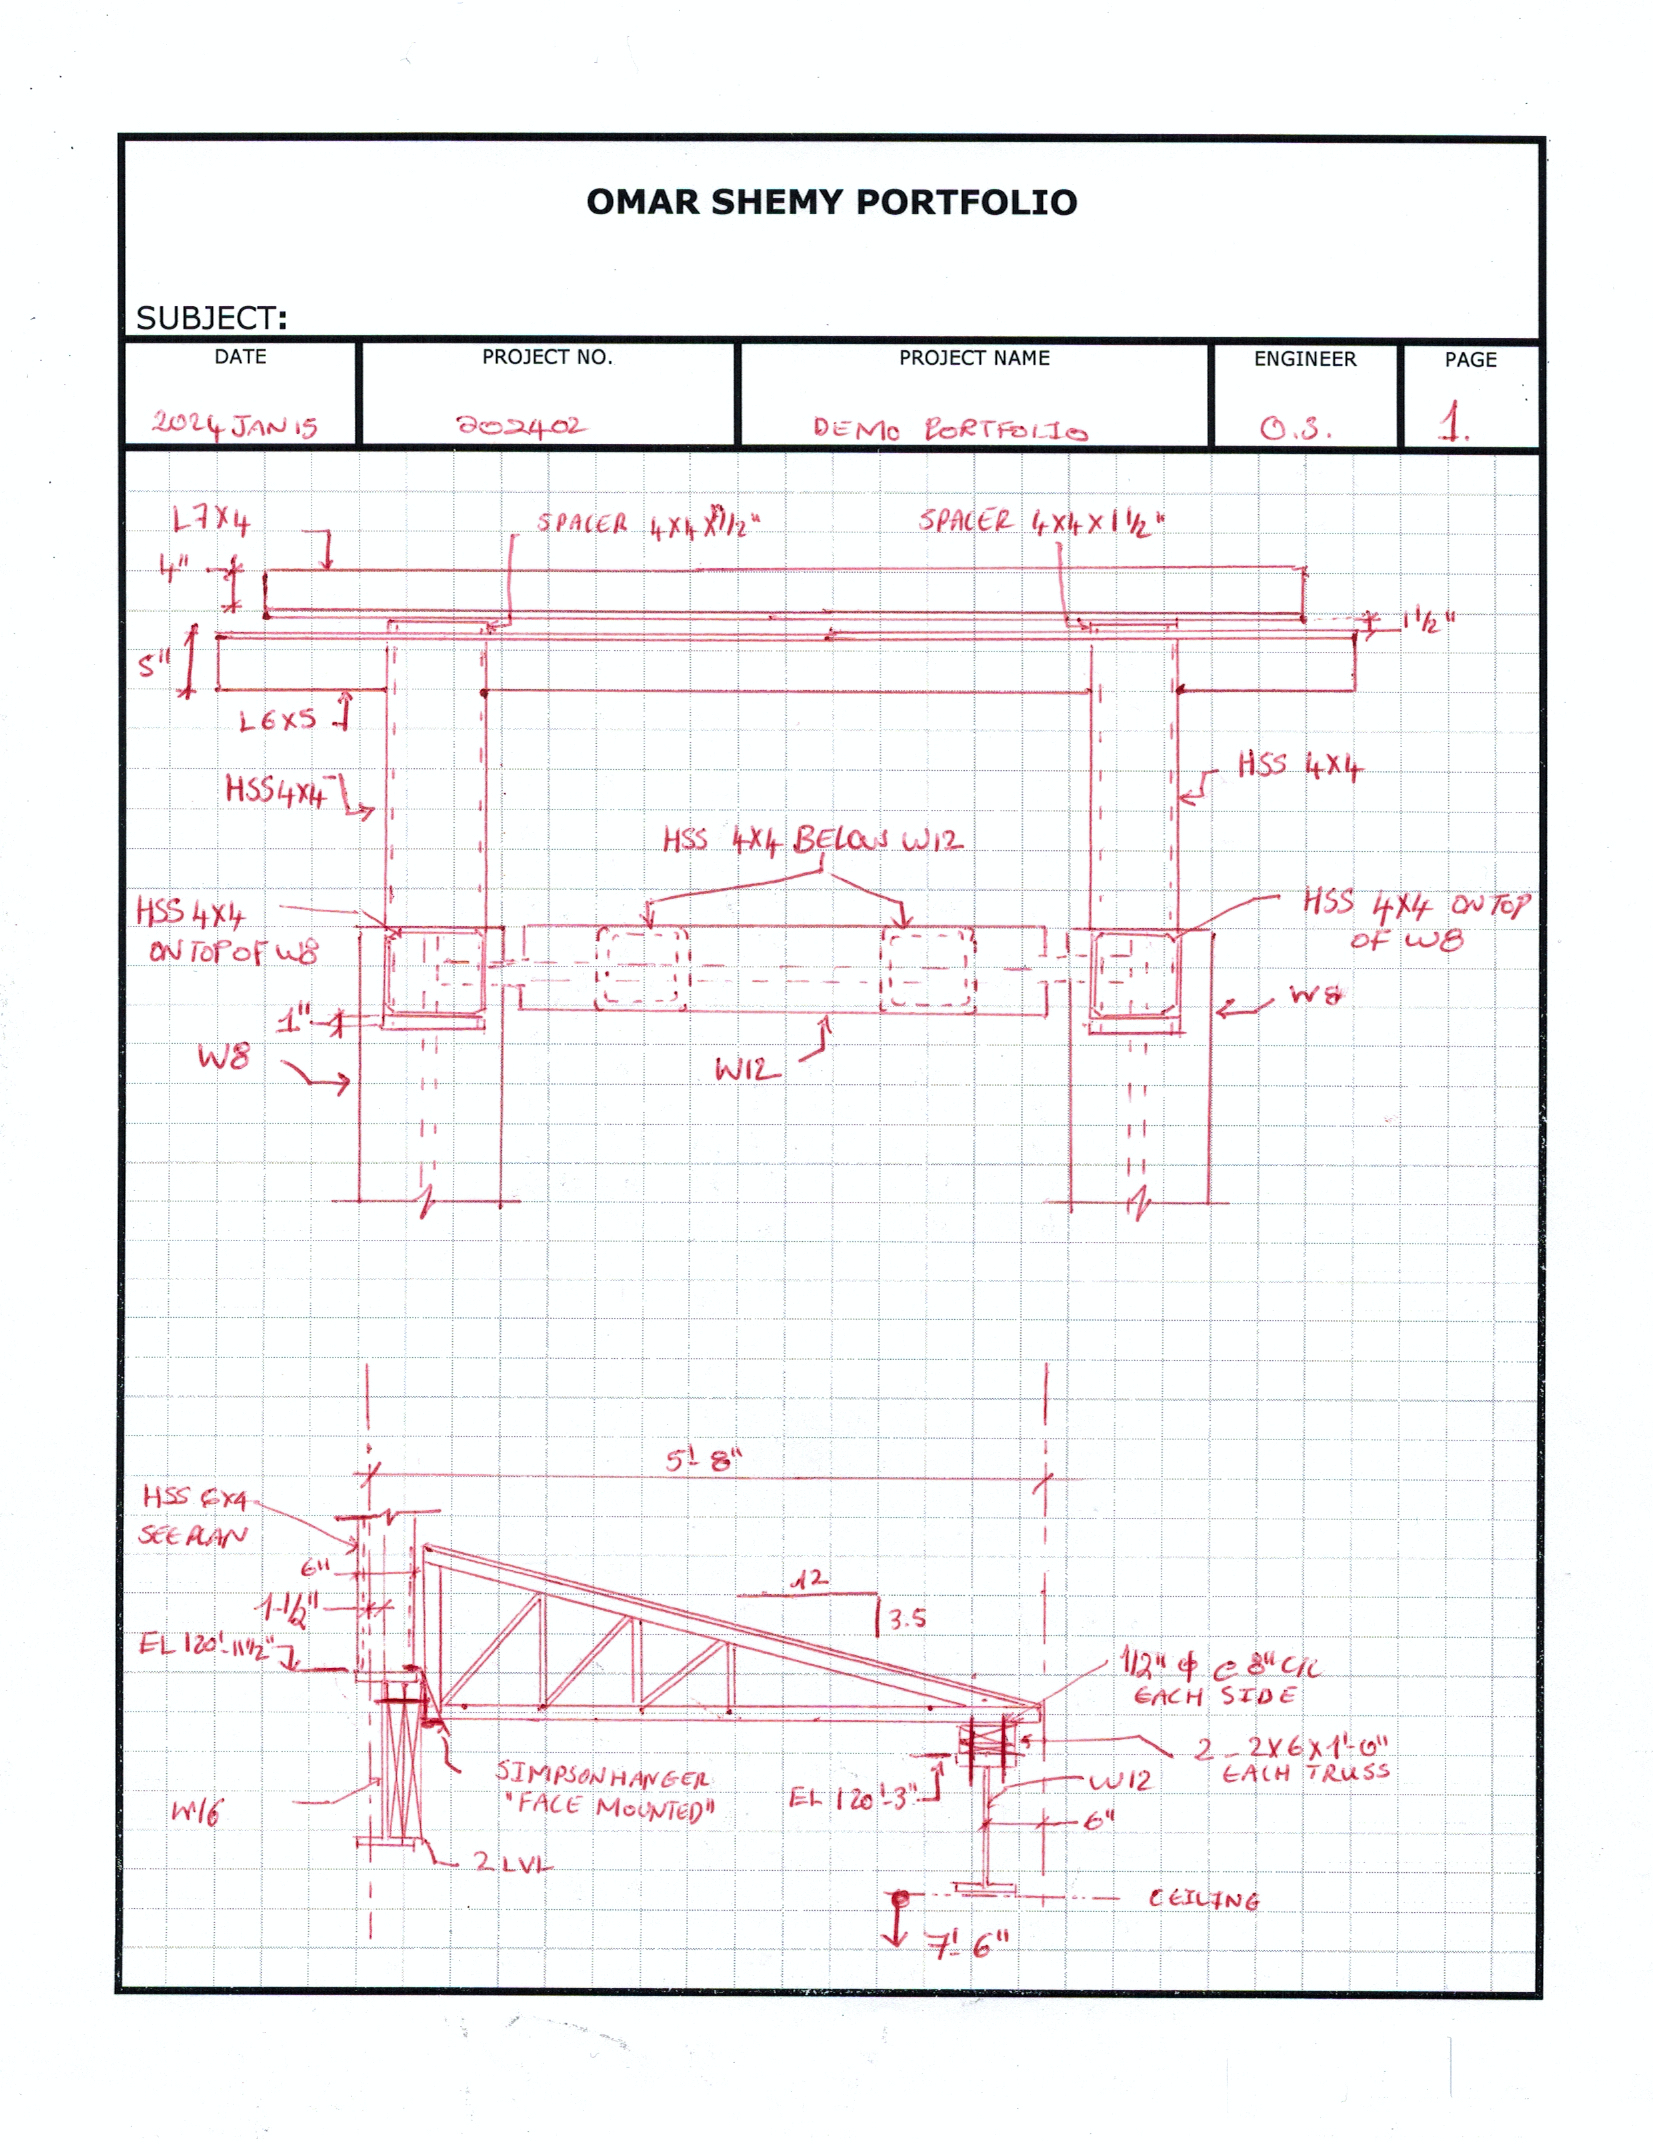 OMAR SHEMY PORTFOLIO
SUBJECT:
DATE
PROJECT NO.
PROJECT NAME
ENGINEER
PAGE
2024 JAN 15
202402
DEMO PORTFOLIO
O.S.
1.
L7X4
SPACER 4X4X1 1/2"
SPACER 4X4X1 1/2"
4"
1 1/2"
5"
L6X5
HSS 4X4
HSS 4X4
HSS 4X4 BELOW W12
HSS 4X4
ON TOP OF W8
HSS 4X4 ON TOP
OF W8
1"
W8
W8
W12
5'-8"
HSS 6X4
SEE PLAN
6"
1-1/2"
EL 120'-11 1/2"
12
3.5
1/2" ϕ @ 8" C/C
EACH SIDE
2-2X6X1'-0"
EACH TRUSS
SIMPSON HANGER
"FACE MOUNTED"
EL 120'-3"
W12
W16
6"
2 LVL
CEILING
7'-6"